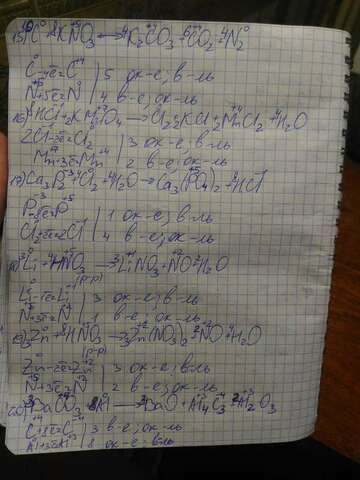 C⁰ + KNO₃ → K₂CO₃ + CO₂ + N₂
C⁰ - 4e = C⁺⁴ | 5 ок-е; в-ль
N⁺⁵ + 5e = N⁰ | 4 в-е; ок-ль
16) HCl + KMnO₄ → Cl₂ + 2KCl + MnCl₂ + H₂O
2Cl - 2e = Cl₂ | 3 ок-е; в-ль
Mn + 3e = Mn⁺⁴ | 2 в-е; ок-ль
17) Ca₃P₂ + Cl₂ + H₂O → Ca₃(PO₄)₂ + HCl
P⁻³ - 8e = P⁺⁵ | 1 ок-е; в-ль
Cl₂ + 2e = 2Cl⁻ | 4 в-е; ок-ль
3Li + 4HNO₃ → 3LiNO₃ + NO + 2H₂O
(р-р)
Li⁰ - 1e = Li⁺ | 3 ок-е; в-ль
N⁺⁵ + 3e = N⁺² | 1 в-е; ок-ль
3Zn + 8HNO₃ → 3Zn(NO₃)₂ + 2NO + 4H₂O
(р-р)
Zn⁰ - 2e = Zn⁺² | 3 ок-е; в-ль
N⁺⁵ + 3e = N⁺² | 2 в-е; ок-ль
BaCO₃ + 8Al → BaO + Al₄C₃ + 2Al₂O₃
C⁺⁴ + 8e = C⁻⁴ | 3 в-е; ок-ль
Al - 3e = Al⁺³ | 8 ок-е; в-ль